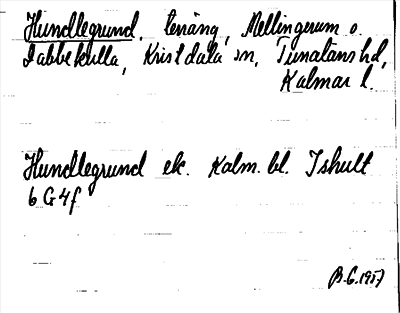 Hundlegrund, teräng, Mellingerum o.
Dabbekulla, Kristdala sn, Tunaläns hd,
Kalmar l.
Hundlegrund ek. Kalm. bl. Ishult
6 G 4 f
B.G. 1957